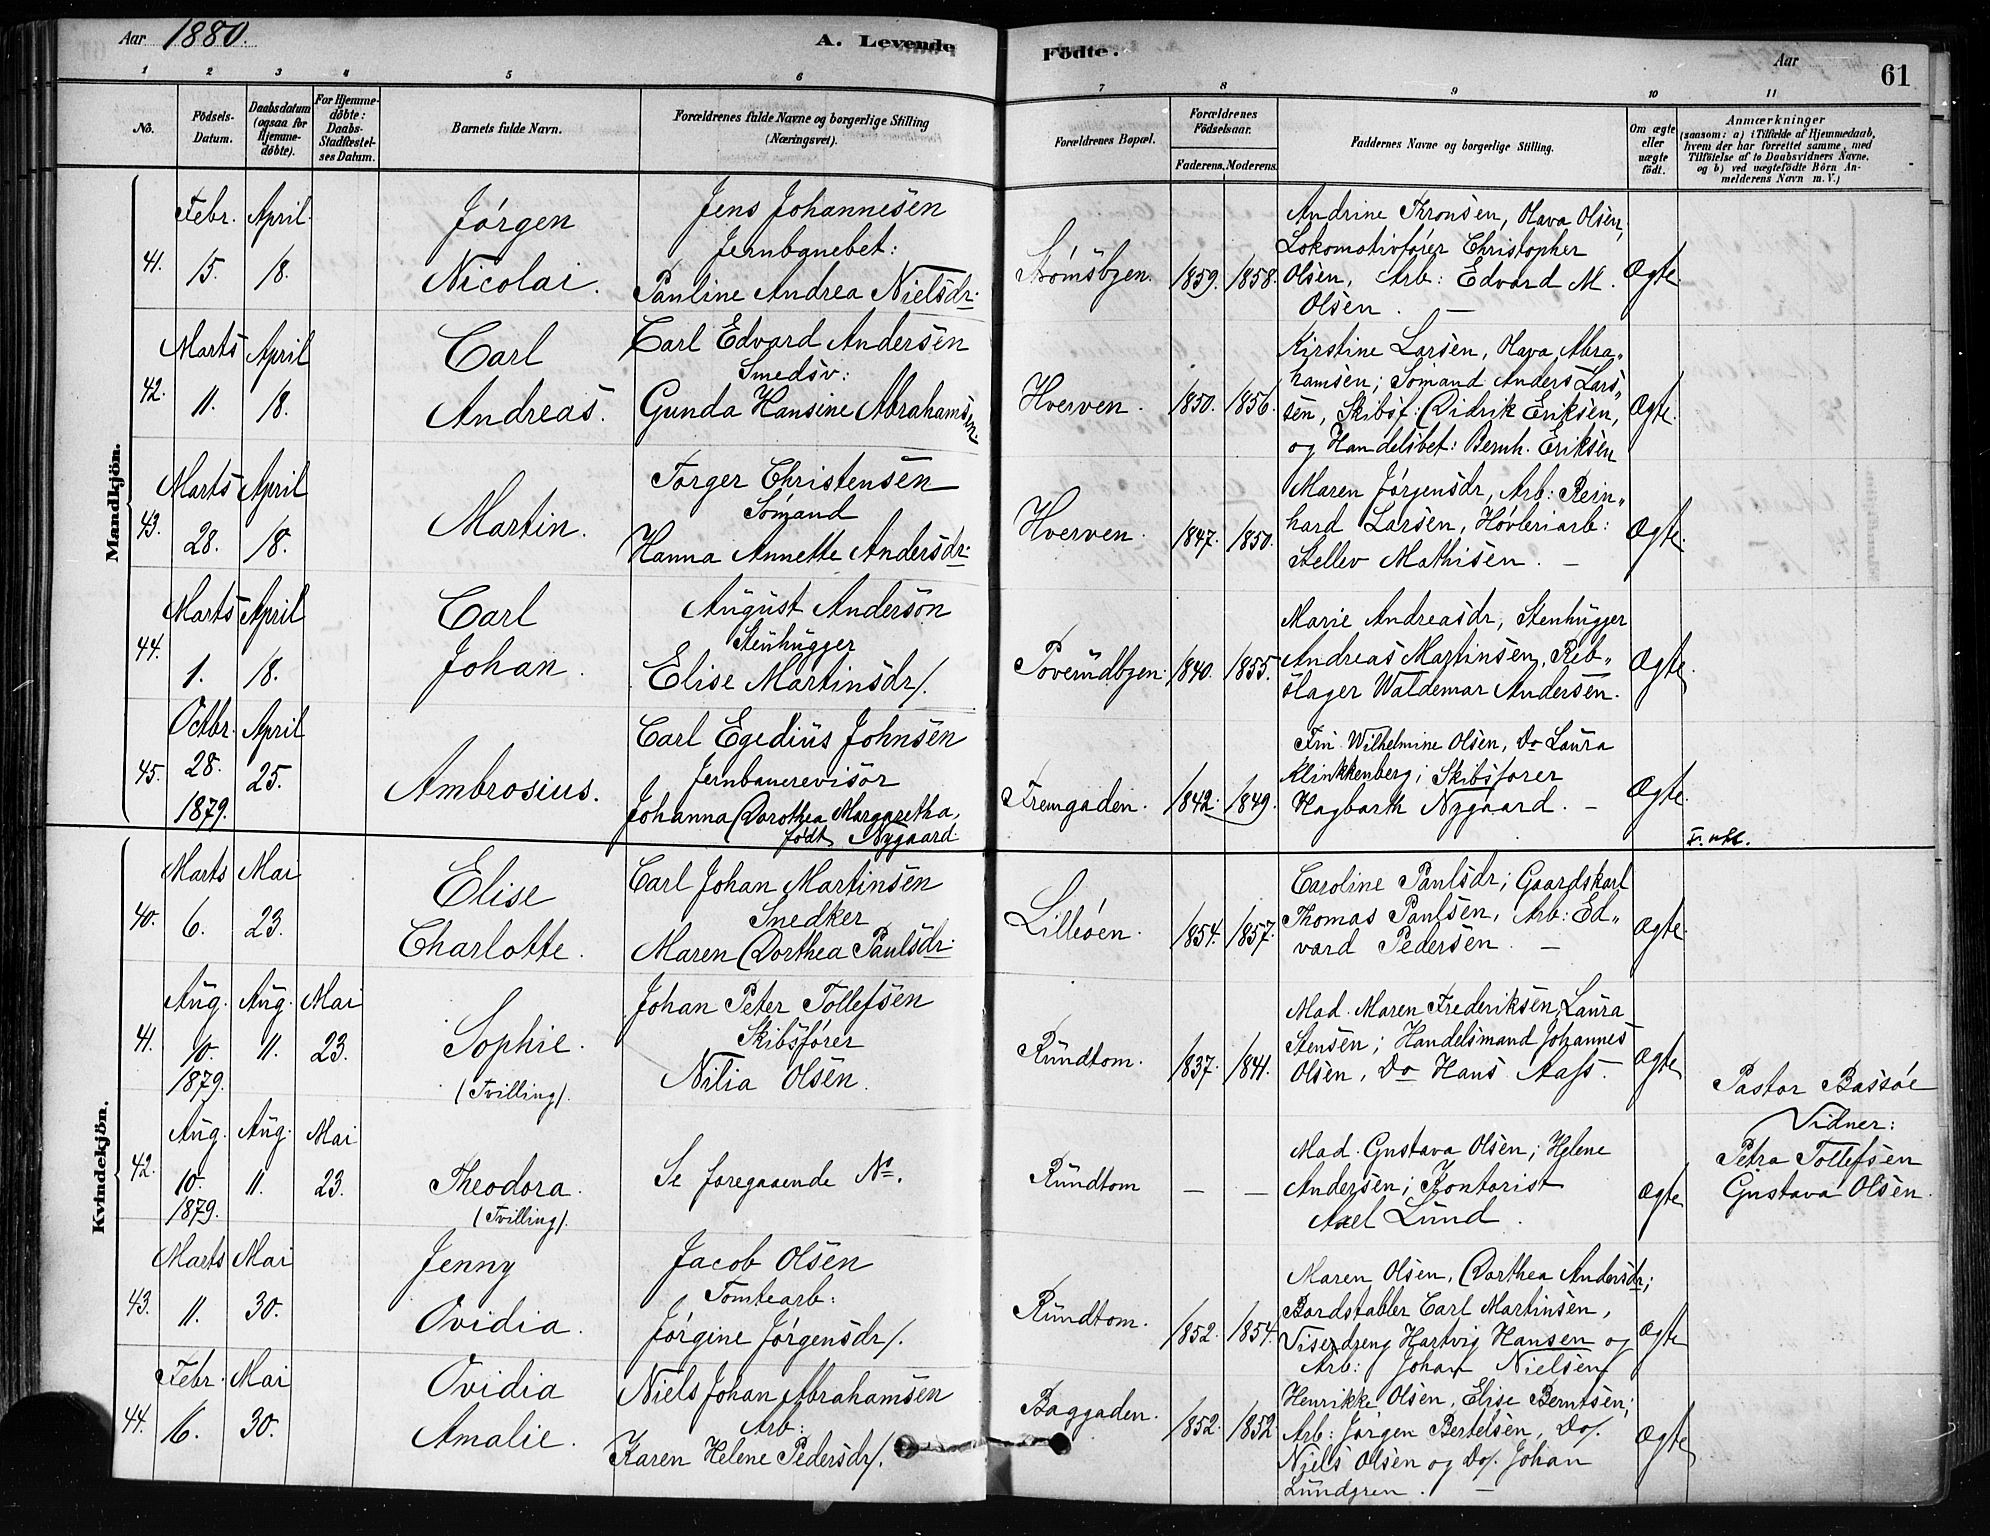 Aar 1880.
A. Levende Födte.
Aar
61
1 2 3 4 5 6 7 8 9 10 11
No.
Födsels-
Datum.
Daabsdatum
(ogsaa for
Hjemme-
döbte).
For Hjemme-
döbte:
Daabs-
Stadfæstel-
ses Datum.
Barnets fulde Navn.
Forældrenes fulde Navne og borgerlige Stilling
(Næringsvei).
Forældrenes Bopæl.
Forældrenes
Födselsaar.
Faderens. Moderens.
Faddernes Navne og borgerlige Stilling.
Om ægte
eller
uægte
födt.
Anmærkninger
(saasom: a) i Tilfælde af Hjemmedaab,
hvem der har forrettet samme, med
Tilföielse af to Daabsvidners Navne,
og b) ved uægtefödte Börn An-
melderens Navn m. V.)
Mandkjön.
41.
Febr. 15.
April 18.
Jörgen
Nicolai.
Jens Johannesen
Jernbanebet:
Pauline Andrea Nielsdr.
Strömsbyen.
1859. 1858.
Andrine Thronsen, Olava Olsen,
Lokomotivfører Christopher
Olsen, Arb: Edvard M.
Olsen. —
Ægte.
42.
Marts 11.
April 18.
Carl
Andreas.
Carl Edvard Andersen
Smedsv:
Gunda Hansine Abrahamsen.
Hverven.
1850. 1856.
Kirstine Larsen, Olava Abra„
hamsen; Sömand Anders Lars„
sen, Skibsf: Didrik Eriksen,
og Handelsbet: Bernh. Eriksen
Ægte.
43.
Marts 28.
April 18.
Martin.
Torger Christensen
Sömand
Hanna Annette Andersdr.
Hverven.
1847. 1850.
Maren Jörgensdr, Arb: Rein„
hard Larsen, Hövleriarb:
Stellev Mathisen. —
Ægte.
44.
Marts 1.
April 18.
Carl
Johan.
August Anderson
Stenhugger
Elise Martinsdr/.
Poverudbyen.
1840. 1855.
Marie Andreasdr, Stenhugger
Andreas Martinsen, Reb„
slager Waldemar Andersen.
Ægte
45.
Octbr. 28. 1879.
April 25.
Ambrosius.
Carl Egedius Johnsen
Jernbanerevisor
Johanna Dorothea Margaretha,
født Nygaard.
Fremgaden.
1842. 1849.
Frü Wilhelmine Olsen, Do Laura
Klinkkenberg; Skibsforer
Hagbarth Nygaard. —
Ægte.
Kvindekjön.
40.
Marts 6.
Mai 23.
Elise
Charlotte.
Carl Johan Martinsen
Snedker
Maren Dorthea Paulsdr.
Lilleöen.
1854. 1857.
Caroline Paulsdr; Gaardskarl
Thomas Paulsen, Arb: Ed„
vard Pedersen. —
Ægte.
41.
Aug. 10. 1879.
Aug. 11.
Mai 23.
Sophie.
(Tvilling).
Johan Peter Tollefsen
Skibsfører
Nilia Olsen.
Rundtom.
1837. 1841.
Mad. Maren Frederiksen, Laura
Stensen; Handelsmand Johannes
Olsen, Do Hans Aass.
Ægte
Pastor Bassöe
Vidner:
Petra Tollefsen
Gustava Olsen.
42.
Aug. 10. 1879.
Aug. 11.
Mai 23.
Theodora.
(Tvilling).
Se foregaaende No.
Rundtom
— —
Mad. Gustava Olsen; Helene
Andersen; Kontorist
Axel Lund.
Ægte
43.
Marts 11.
Mai 30.
Jenny
Ovidia.
Jacob Olsen
Tomtearb:
Jörgine Jörgensdr/.
Rundtom.
1852. 1854.
Maren Olsen, Dorthea Andersdr;
Bordstabler Carl Martinsen,
Viserdreng Hartvig Hansen og
Arb: Johan Nielsen
Ægte
44.
Febr. 16.
Mai 30.
Ovidia
Amalie.
Niels Johan Abrahamsen
Arb:
Karen Helene Pedersdr/.
Baggaden.
1852. 1852
Henrikke Olsen, Elise Berntsen;
Arb: Jörgen Bertelsen, Do/.
Niels Olsen og Do/. Johan
Lundgren. —
Ægte